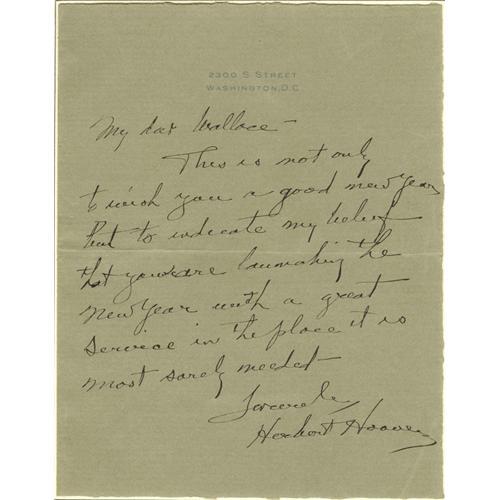 2300 S STREET
WASHINGTON, D.C
My dear Wallace —
This is not only
to wish you a good new year
but to indicate my belief
that you are launching the
new year with a great
service in the place it is
most sorely needed
Sincerely
Herbert Hoover